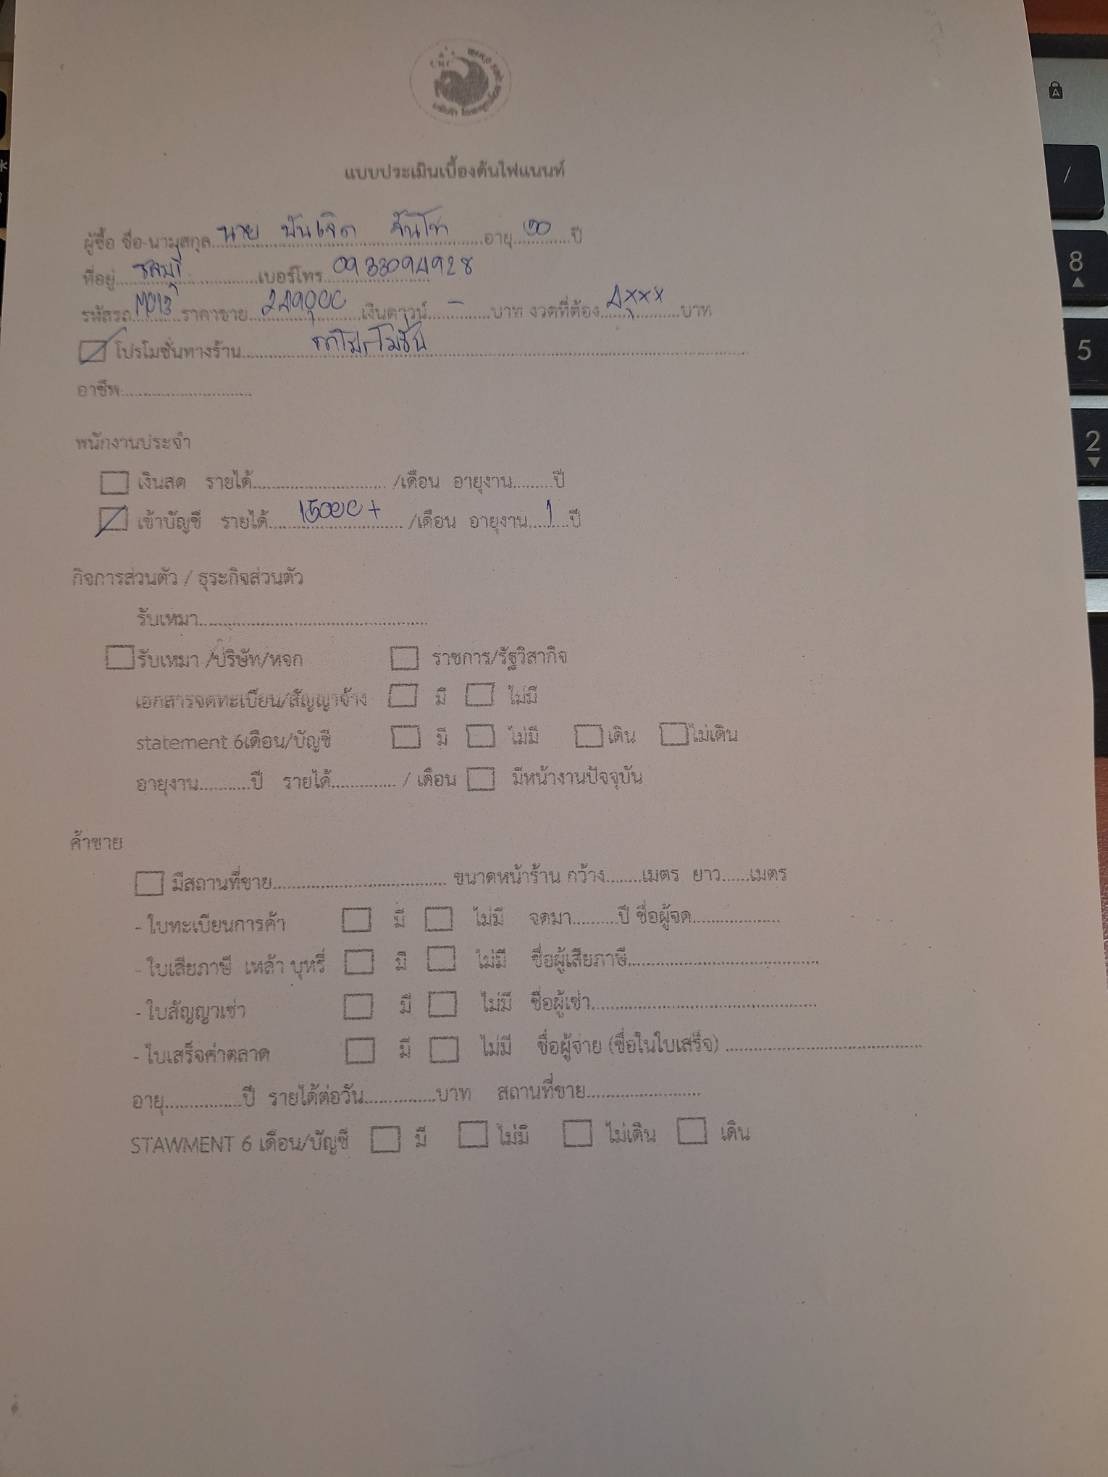 แบบประเมินเบื้องต้นไฟแนนท์
ผู้ซื้อ ชื่อ-นามสกุล นาย อายุ ปี
ที่อยู่ ชลบุรี เบอร์โทร 0933094928
รหัสรถ M013 ราคาขาย 249000 เงินดาวน์ - บาท งวดที่ต้อง 4,xxx บาท
โปรโมชั่นทางร้าน รถโปรโมชั่น
อาชีพ
พนักงานประจำ
เงินสด รายได้ /เดือน อายุงาน ปี
เข้าบัญชี รายได้ 15000+ /เดือน อายุงาน 1 ปี
กิจการส่วนตัว / ธุระกิจส่วนตัว
รับเหมา
รับเหมา /บริษัท/หจก ราชการ/รัฐวิสากิจ
เอกสารจดทะเบียน/สัญญาจ้าง มี ไม่มี
statement 6เดือน/บัญชี มี ไม่มี เดิน ไม่เดิน
อายุงาน ปี รายได้ / เดือน มีหน้างานปัจจุบัน
ค้าขาย
มีสถานที่ขาย ขนาดหน้าร้าน กว้าง เมตร ยาว เมตร
- ใบทะเบียนการค้า มี ไม่มี จดมา ปี ชื่อผู้จด
- ใบเสียภาษี เหล้า บุหรี่ มี ไม่มี ชื่อผู้เสียภาษี
- ใบสัญญาเช่า มี ไม่มี ชื่อผู้เช่า
- ใบเสร็จค่าตลาด มี ไม่มี ชื่อผู้จ่าย (ชื่อในใบเสร็จ)
อายุ ปี รายได้ต่อวัน บาท สถานที่ขาย
STAWMENT 6 เดือน/บัญชี มี ไม่มี ไม่เดิน เดิน